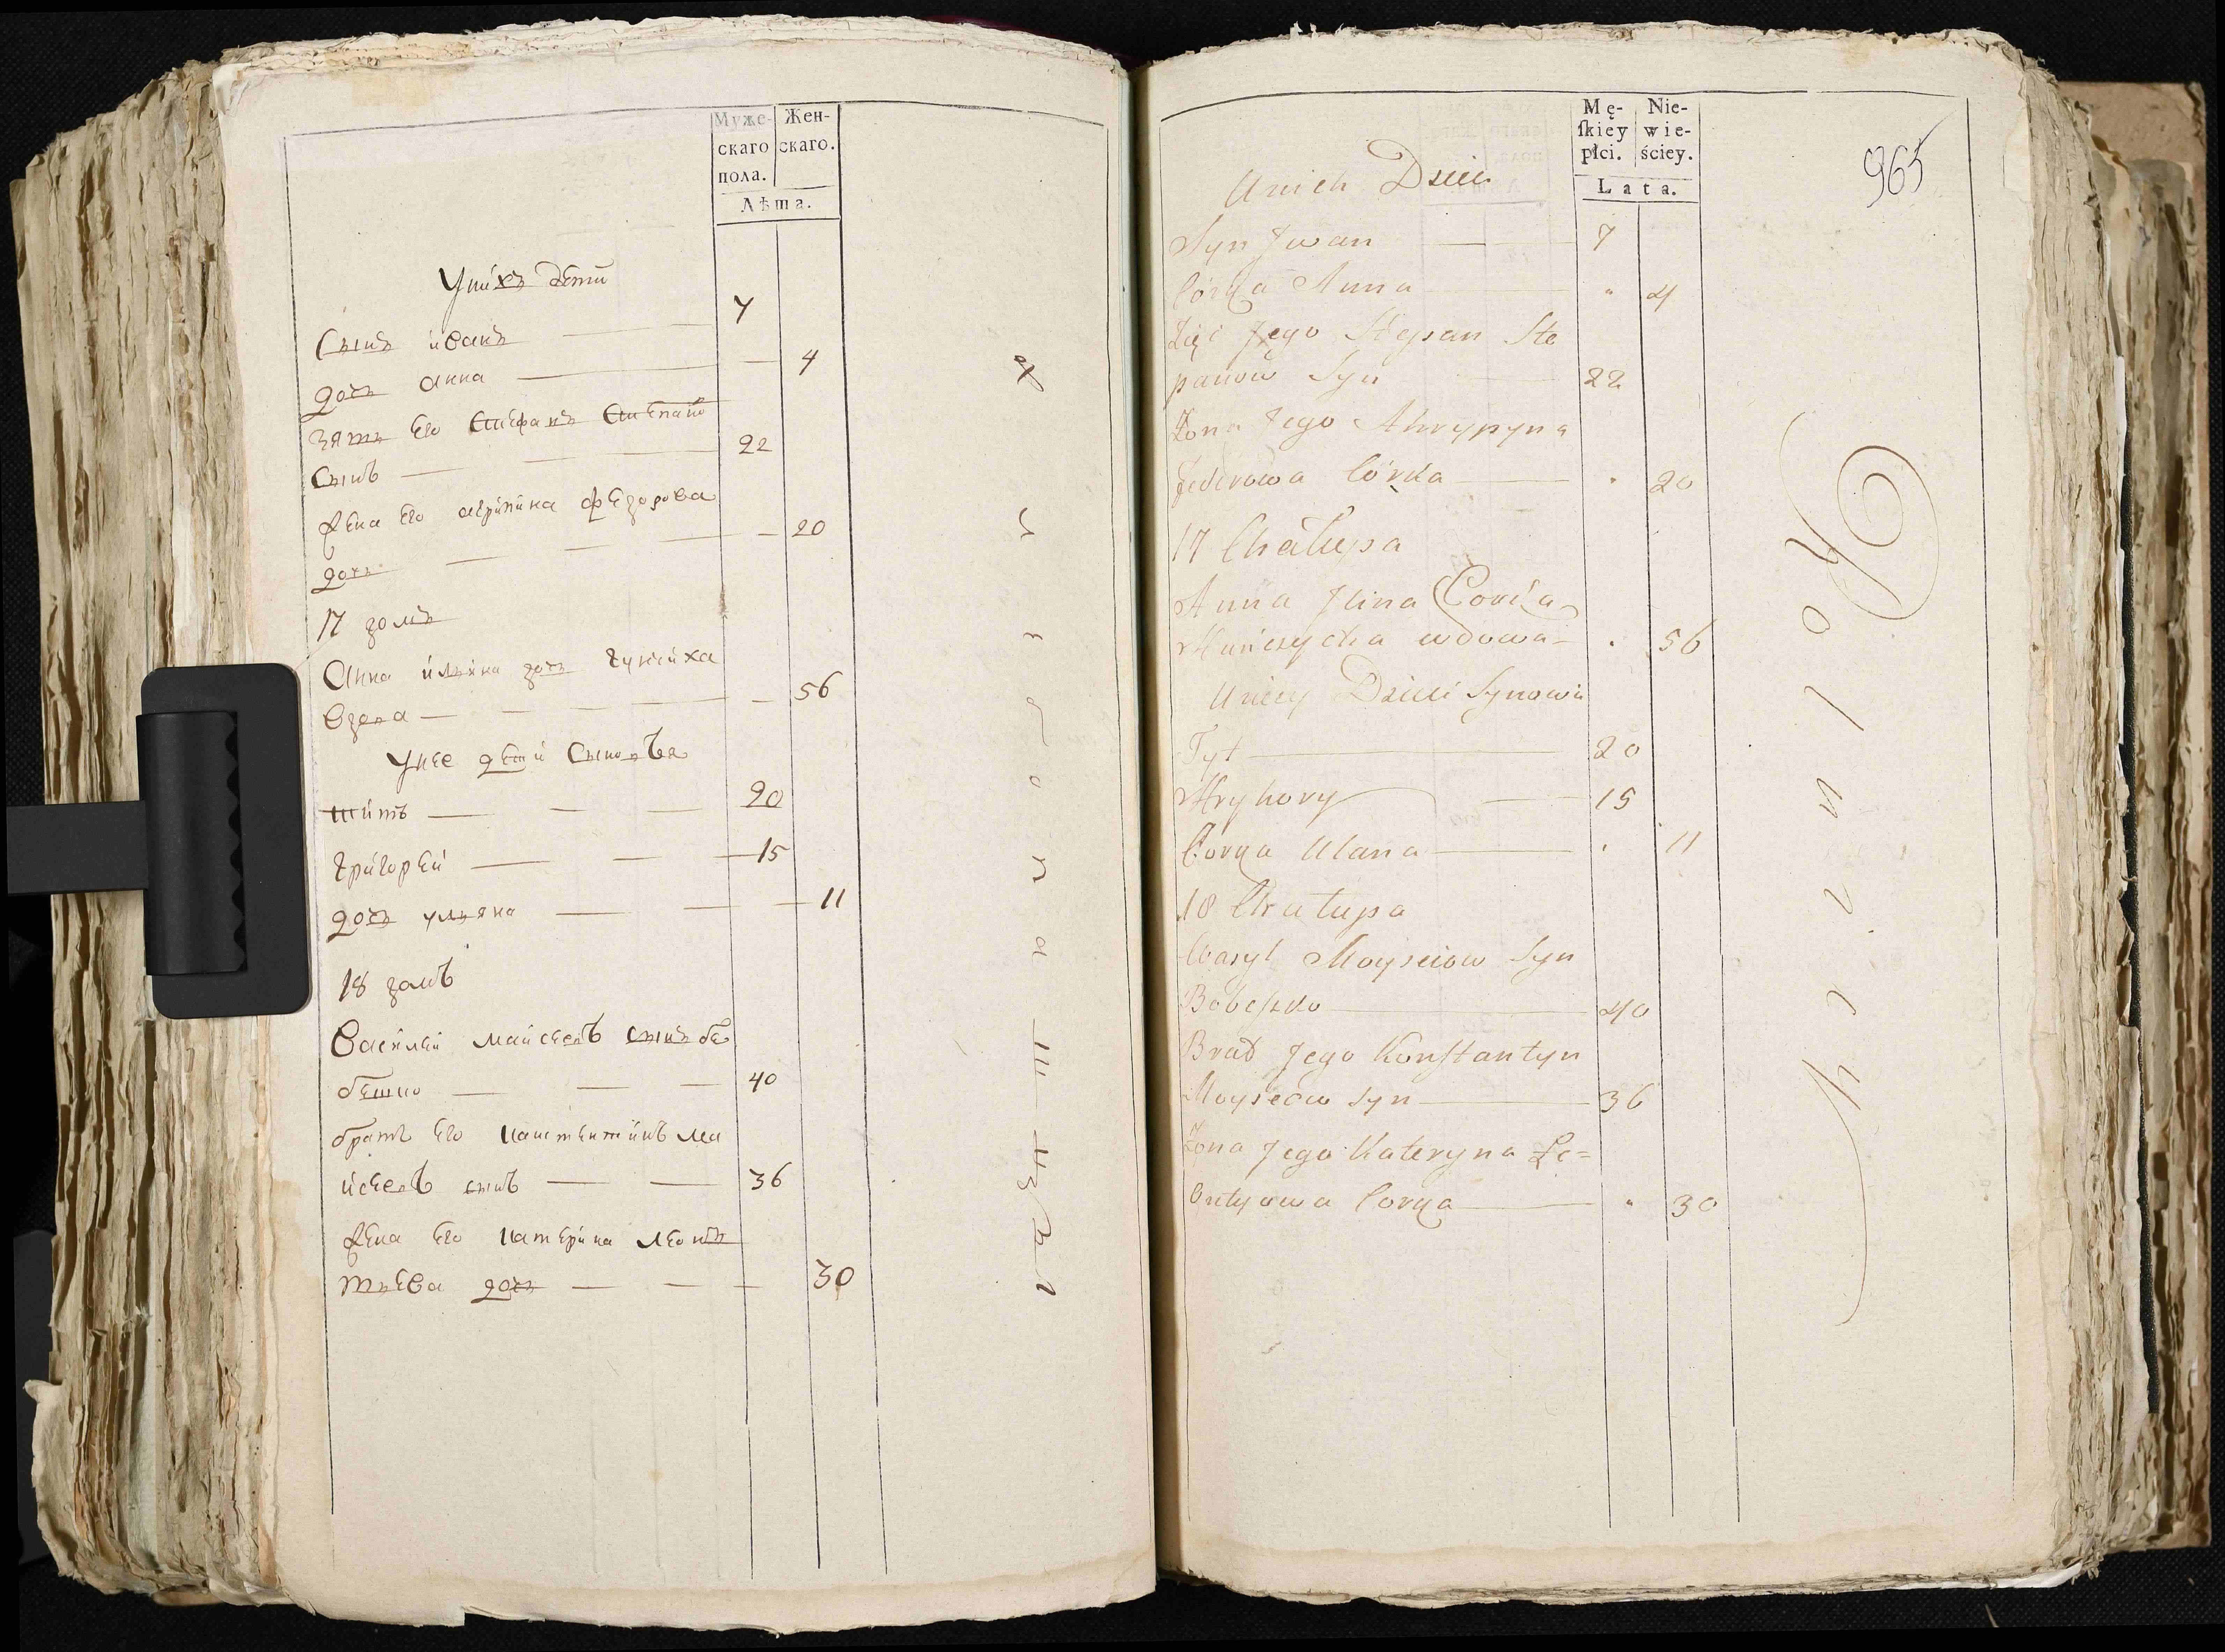 Муже-
скаго
пола.
Жен-
скаго.
Лѣта.
Унихъ дети
Сынъ иванъ — 7
дочь анна — 4
зять Его Стефанъ Степано
Сынъ — 22
жена Его агрипина федорова
дочь — 20
17 домъ
Анна ильина дочь
вдова — 56
Унее дети Сыновья
титъ — 20
григорей — 15
дочь ульяна — 11
18 домъ
Василей майсеовъ сынъ бо
бешко — 40
братъ Его костентинъ ма
исеовъ сынъ — 36
жена Его катерина леонь
тьева дочь — 30
Mę-
ſkiey
płci.
Nie-
wie-
ściey.
Lata.
965
Unich Dzieci
Syn Jwan — 7
Córka Anna — " 4
Zięć Jego Stepan Ste
panow Syn — 22
Żona Jego Ahrypyna
Fedorowa Córka — " 20
17 Chałupa
Anna Jlina Corka
wdowa — " 56
Unieỵ Dzieci Synowie
Tyt — 20
Hryhory — 15
Corka Ulana — " 11
18 Chałupa
Wasyl Moyseiow Syn
— 40
Brat Jego Konſtantyn
Moyseow Syn — 36
Żona Jego Kateryna Le=
ontyowa Corka — " 30